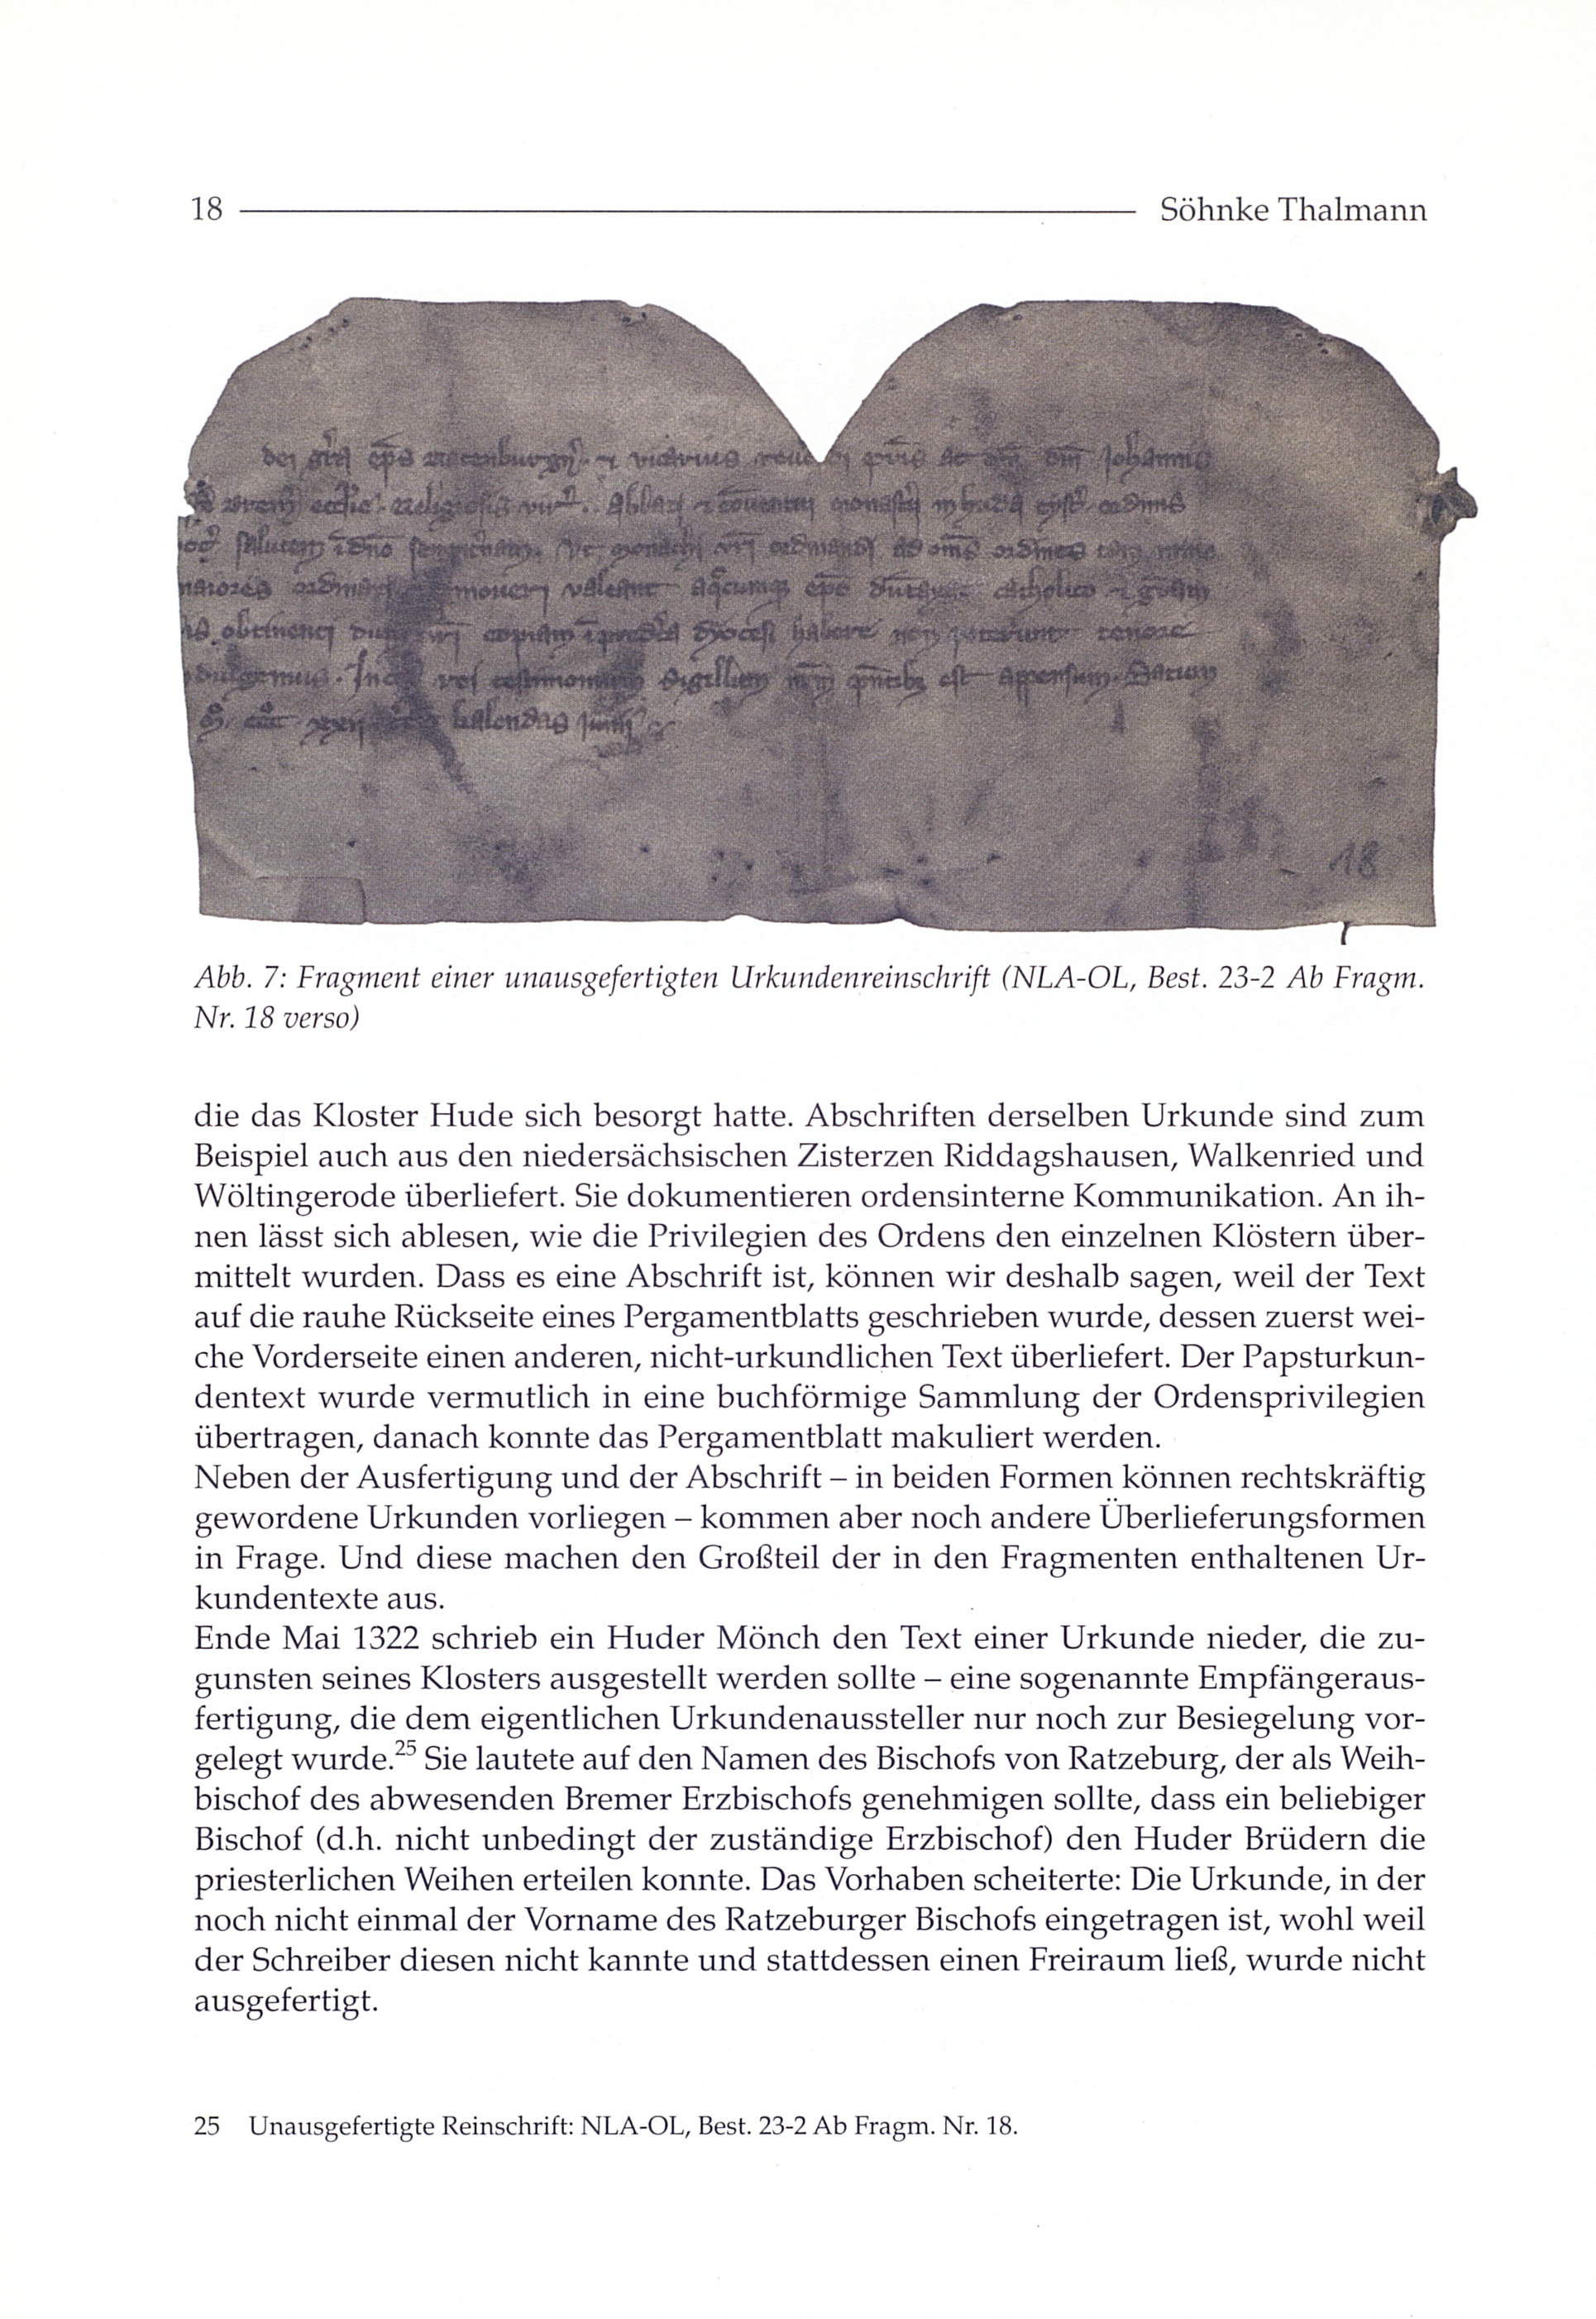 18 Söhnke Thalmann
dei gr̄a ep̄s
vicarius
Joh̄annis
eccl̄ie
Abbati
salutem
ordines
maiores
valeant
catholico
habere non
Sigillum
est appensum. Datum
xxij
kalendas Junij
18
Abb. 7: Fragment einer unausgefertigten Urkundenreinschrift (NLA-OL, Best. 23-2 Ab Fragm.
Nr. 18 verso)
die das Kloster Hude sich besorgt hatte. Abschriften derselben Urkunde sind zum
Beispiel auch aus den niedersächsischen Zisterzen Riddagshausen, Walkenried und
Wöltingerode überliefert. Sie dokumentieren ordensinterne Kommunikation. An ih-
nen lässt sich ablesen, wie die Privilegien des Ordens den einzelnen Klöstern über-
mittelt wurden. Dass es eine Abschrift ist, können wir deshalb sagen, weil der Text
auf die rauhe Rückseite eines Pergamentblatts geschrieben wurde, dessen zuerst wei-
che Vorderseite einen anderen, nicht-urkundlichen Text überliefert. Der Papsturkun-
dentext wurde vermutlich in eine buchförmige Sammlung der Ordensprivilegien
übertragen, danach konnte das Pergamentblatt makuliert werden.
Neben der Ausfertigung und der Abschrift – in beiden Formen können rechtskräftig
gewordene Urkunden vorliegen – kommen aber noch andere Überlieferungsformen
in Frage. Und diese machen den Großteil der in den Fragmenten enthaltenen Ur-
kundentexte aus.
Ende Mai 1322 schrieb ein Huder Mönch den Text einer Urkunde nieder, die zu-
gunsten seines Klosters ausgestellt werden sollte – eine sogenannte Empfängeraus-
fertigung, die dem eigentlichen Urkundenaussteller nur noch zur Besiegelung vor-
gelegt wurde.25 Sie lautete auf den Namen des Bischofs von Ratzeburg, der als Weih-
bischof des abwesenden Bremer Erzbischofs genehmigen sollte, dass ein beliebiger
Bischof (d.h. nicht unbedingt der zuständige Erzbischof) den Huder Brüdern die
priesterlichen Weihen erteilen konnte. Das Vorhaben scheiterte: Die Urkunde, in der
noch nicht einmal der Vorname des Ratzeburger Bischofs eingetragen ist, wohl weil
der Schreiber diesen nicht kannte und stattdessen einen Freiraum ließ, wurde nicht
ausgefertigt.
25 Unausgefertigte Reinschrift: NLA-OL, Best. 23-2 Ab Fragm. Nr. 18.